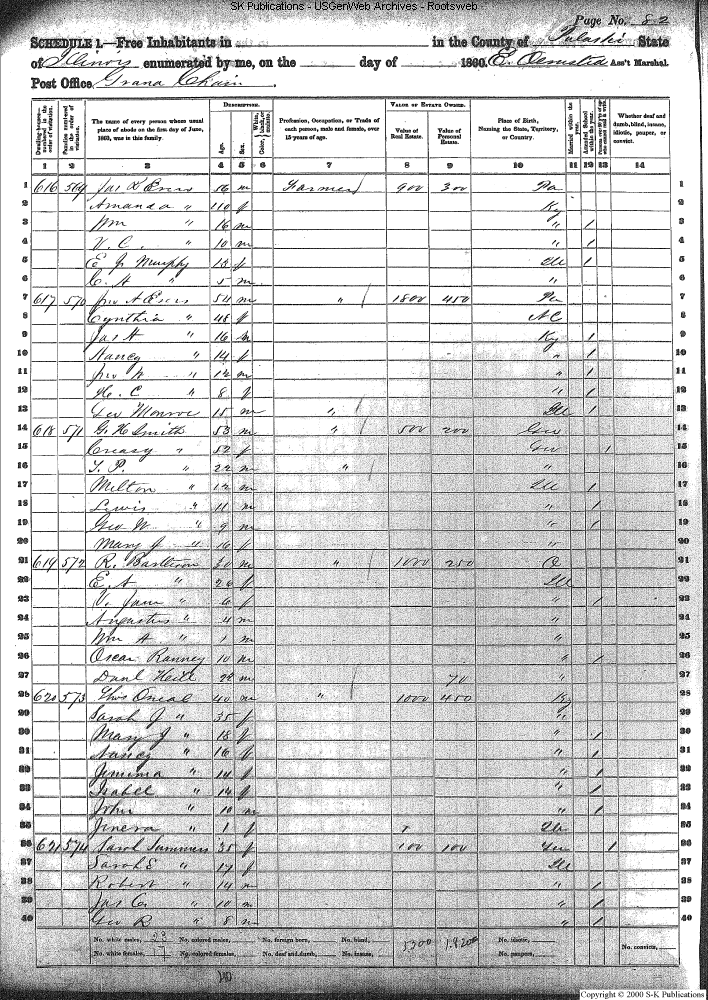 SK Publications - USGenWeb Archives - Rootsweb
Page No. 82
SCHEDULE 1.—Free Inhabitants in in the County of Pulaski State
of Illinois enumerated by me, on the day of 1860. E. Olmsted Ass't Marshal.
Post Office Grand Chain
Dwelling-houses—numbered in the order of visitation.
Families numbered in the order of visitation.
The name of every person whose usual place of abode on the first day of June, 1860, was in this family.
DESCRIPTION.
Age.
Sex.
Color, White, black, or mulatto.
Profession, Occupation, or Trade of each person, male and female, over 15 years of age.
VALUE OF ESTATE OWNED.
Value of Real Estate.
Value of Personal Estate.
Place of Birth, Naming the State, Territory, or Country.
Married within the year.
Attended School within the year.
Whether deaf and dumb, blind, insane, idiotic, pauper, or convict.
1 2 3 4 5 6 7 8 9 10 11 12 13 14
1 616 569 Jas 56 m Farmer 900 300 Pa 1
2 Amanda " f Ky 2
3 Wm " 16 m " / 3
4 V. C. " 10 m " / 4
5 E J Murphy 13 f Ill / 5
6 C. A " 5 m " 6
7 617 570 Jno A 54 m " 1800 450 Pa 7
8 Cynthia " 48 f NC 8
9 Jas H " 16 m Ky / 9
10 Nancy " 14 f " / 10
11 Jno " 12 m " / 11
12 H. C " 8 f " / 12
13 Geo Monroe 15 m " Ill / 13
14 618 571 G. H Smith 53 m " 500 200 Geo 14
15 Creasy " 52 f Geo / 15
16 T. P. " 22 m " " 16
17 Milton " 12 m Ill / 17
18 Lewis " 11 m " / 18
19 Geo W " 9 m " / 19
20 Mary J " 16 f " 20
21 619 572 R. 30 m " 1000 250 O 21
22 E. A " 26 f Ill 22
23 V. Jane " 6 f " / 23
24 Augustus " 4 m " 24
25 Wm A " 1 m " 25
26 Oscar Ranney 10 m " / 26
27 Danl 22 m 70 " 27
28 620 573 Thos Oneal 40 m " 1000 450 Ky 28
29 Sarah J " 35 f " 29
30 Mary J " 18 f " / 30
31 Nancy " 16 f " / 31
32 Jemima " 14 f " / 32
33 Isabel " 14 f " / 33
34 John " 10 m " / 34
35 Jinera " 1 f Ill 35
36 621 574 Sarah Summers 35 f 100 100 Ten / 36
37 Sarah E " 17 f Ill 37
38 Robert " 14 m " / 38
39 Jas C. " 10 m " / 39
40 Geo R " 8 m " / 40
No. white males, 23 No. colored males, No. foreign born, No. blind, 5300 No. idiotic, No. convicts,
No. white females, 17 No. colored females, No. deaf and dumb, No. insane, No. paupers,
Copyright © 2000 S-K Publications